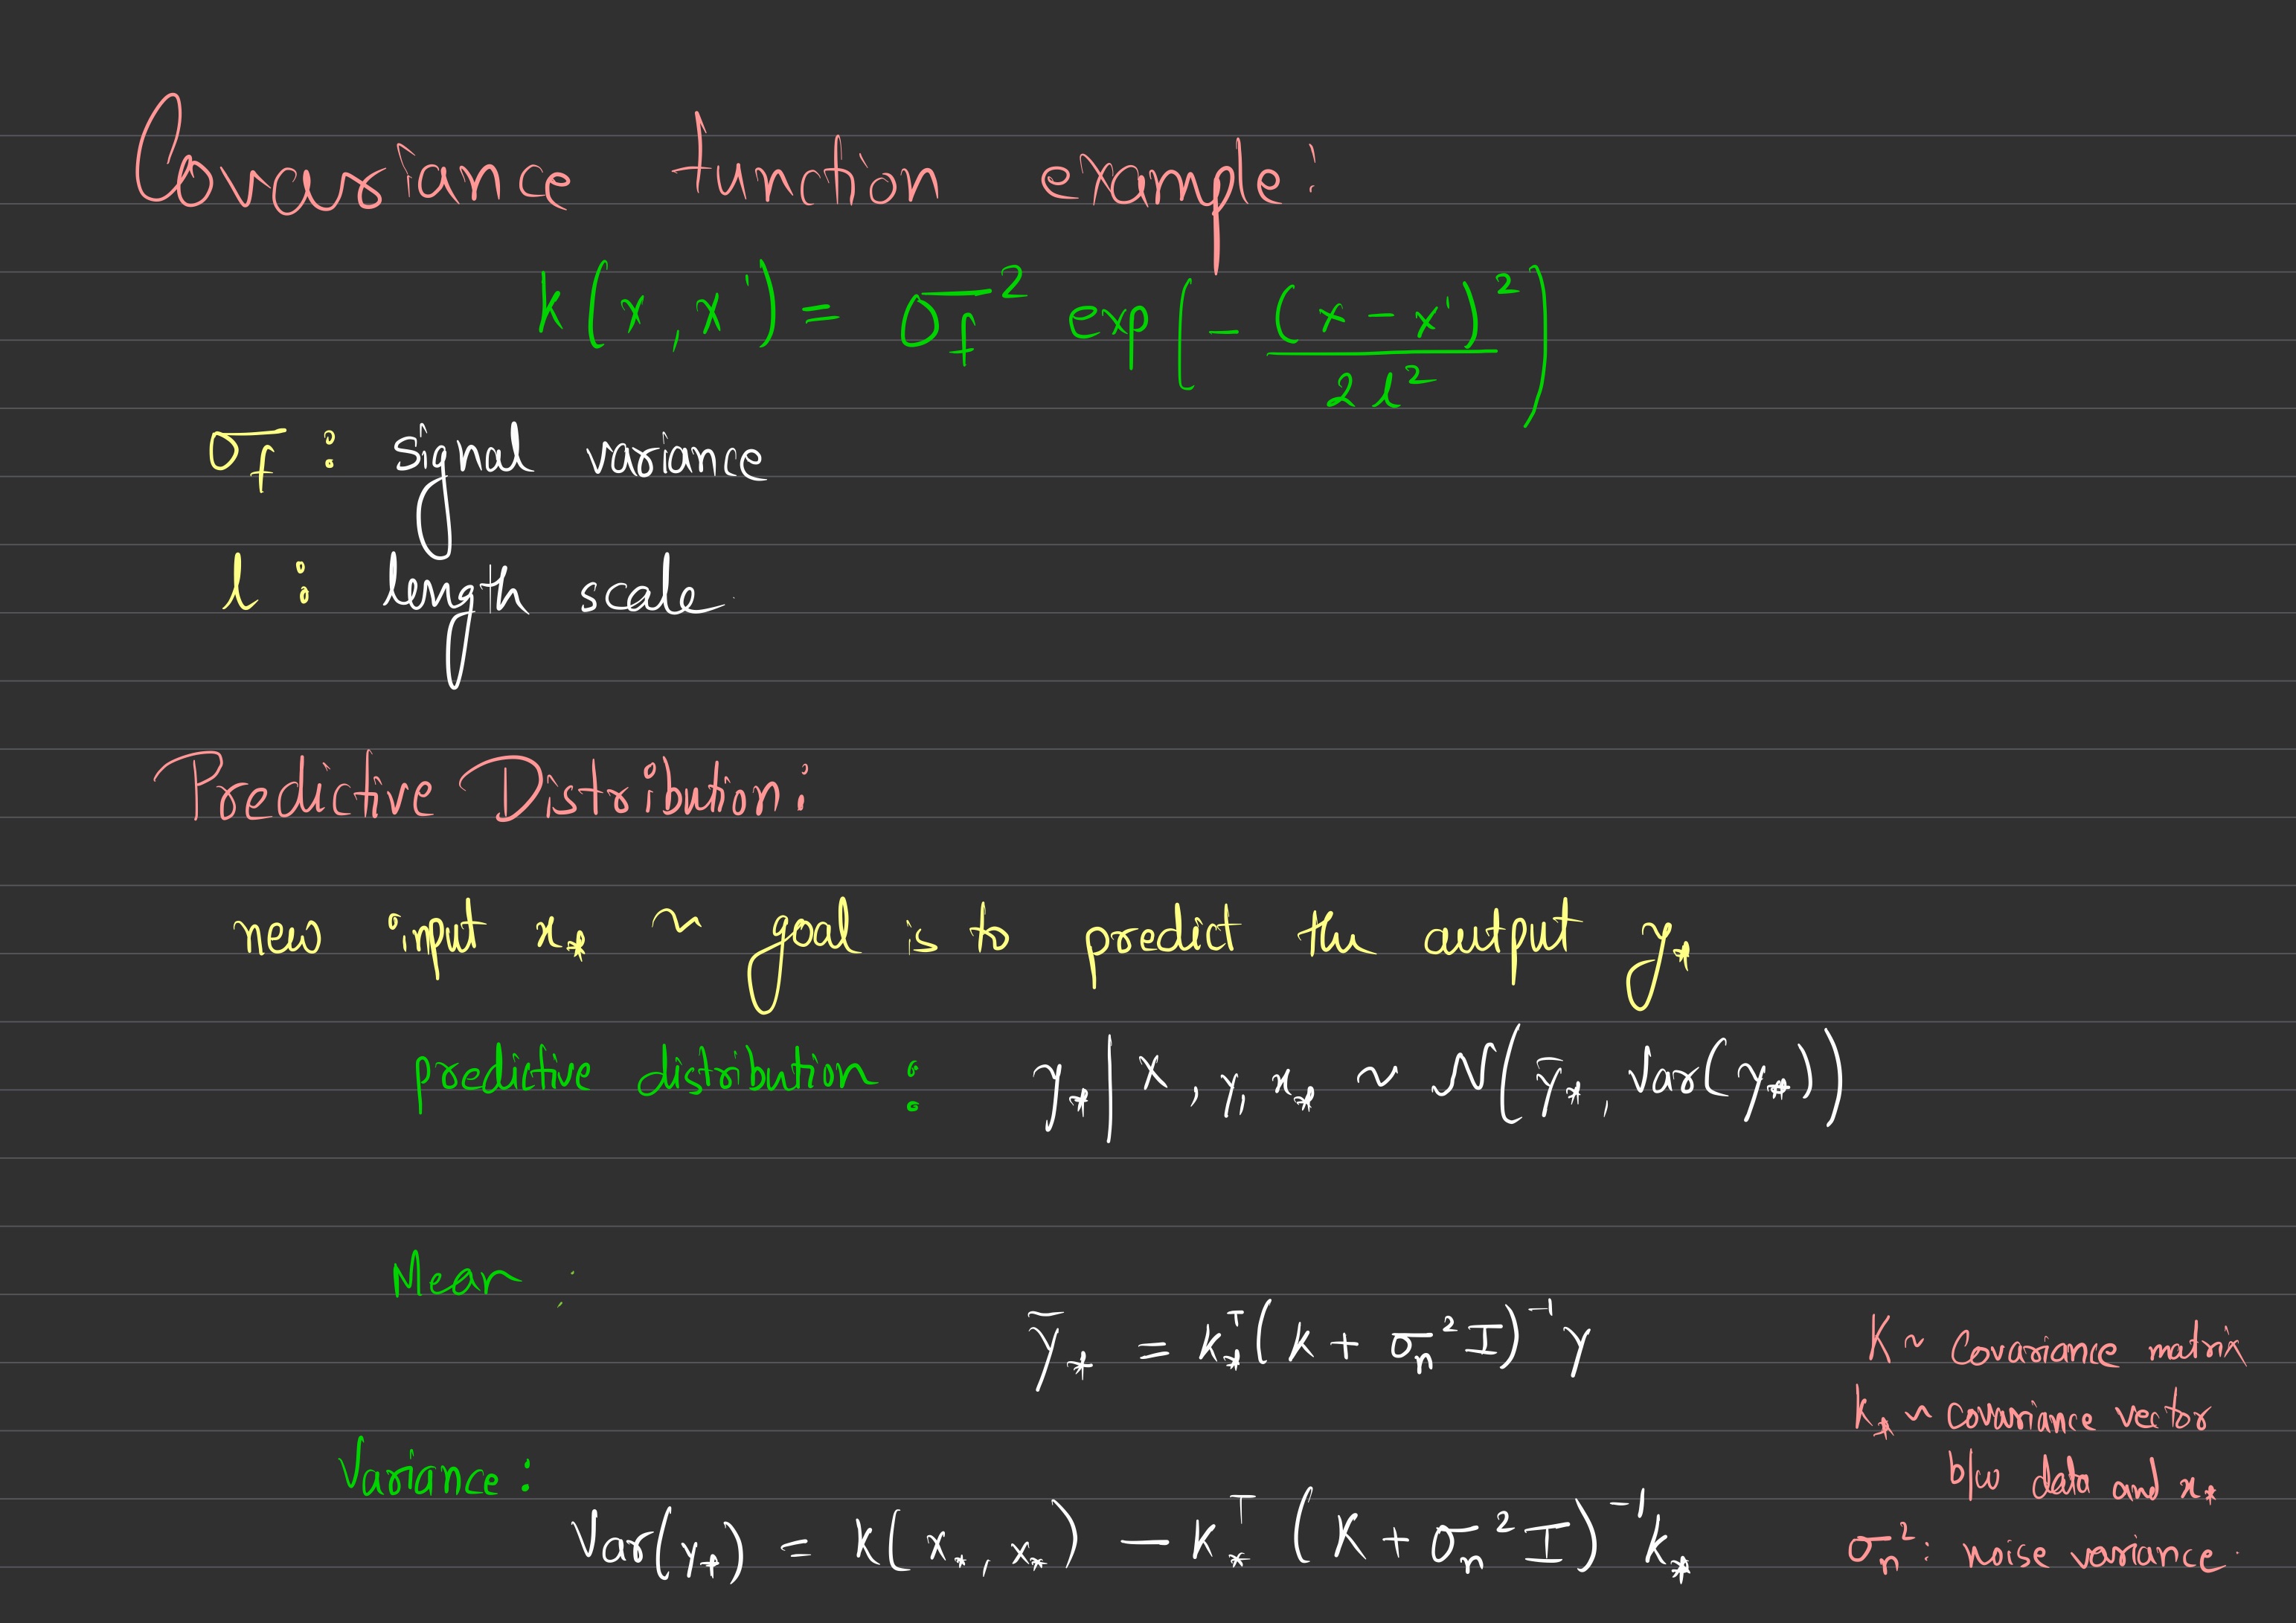 Covariance function example:
k(x, x') = σ_f² exp(- (x - x')² / 2l²)
σ_f : signal variance
l : length scale.
Predictive Distribution:
new input x_* ~ goal is to predict the output y_*
predictive distribution : y_* | X, y, x_* ~ N(ȳ_*, Var(y_*))
Mean :
ȳ_* = k_*ᵀ (K + σ_n² I)⁻¹ y
K ~ Covariance matrix
k_* ~ covariance vector
b/w data and x_*
Variance :
Var(y_*) = k(x_*, x_*) - k_*ᵀ (K + σ_n² I)⁻¹ k_*
σ_n² : noise variance.